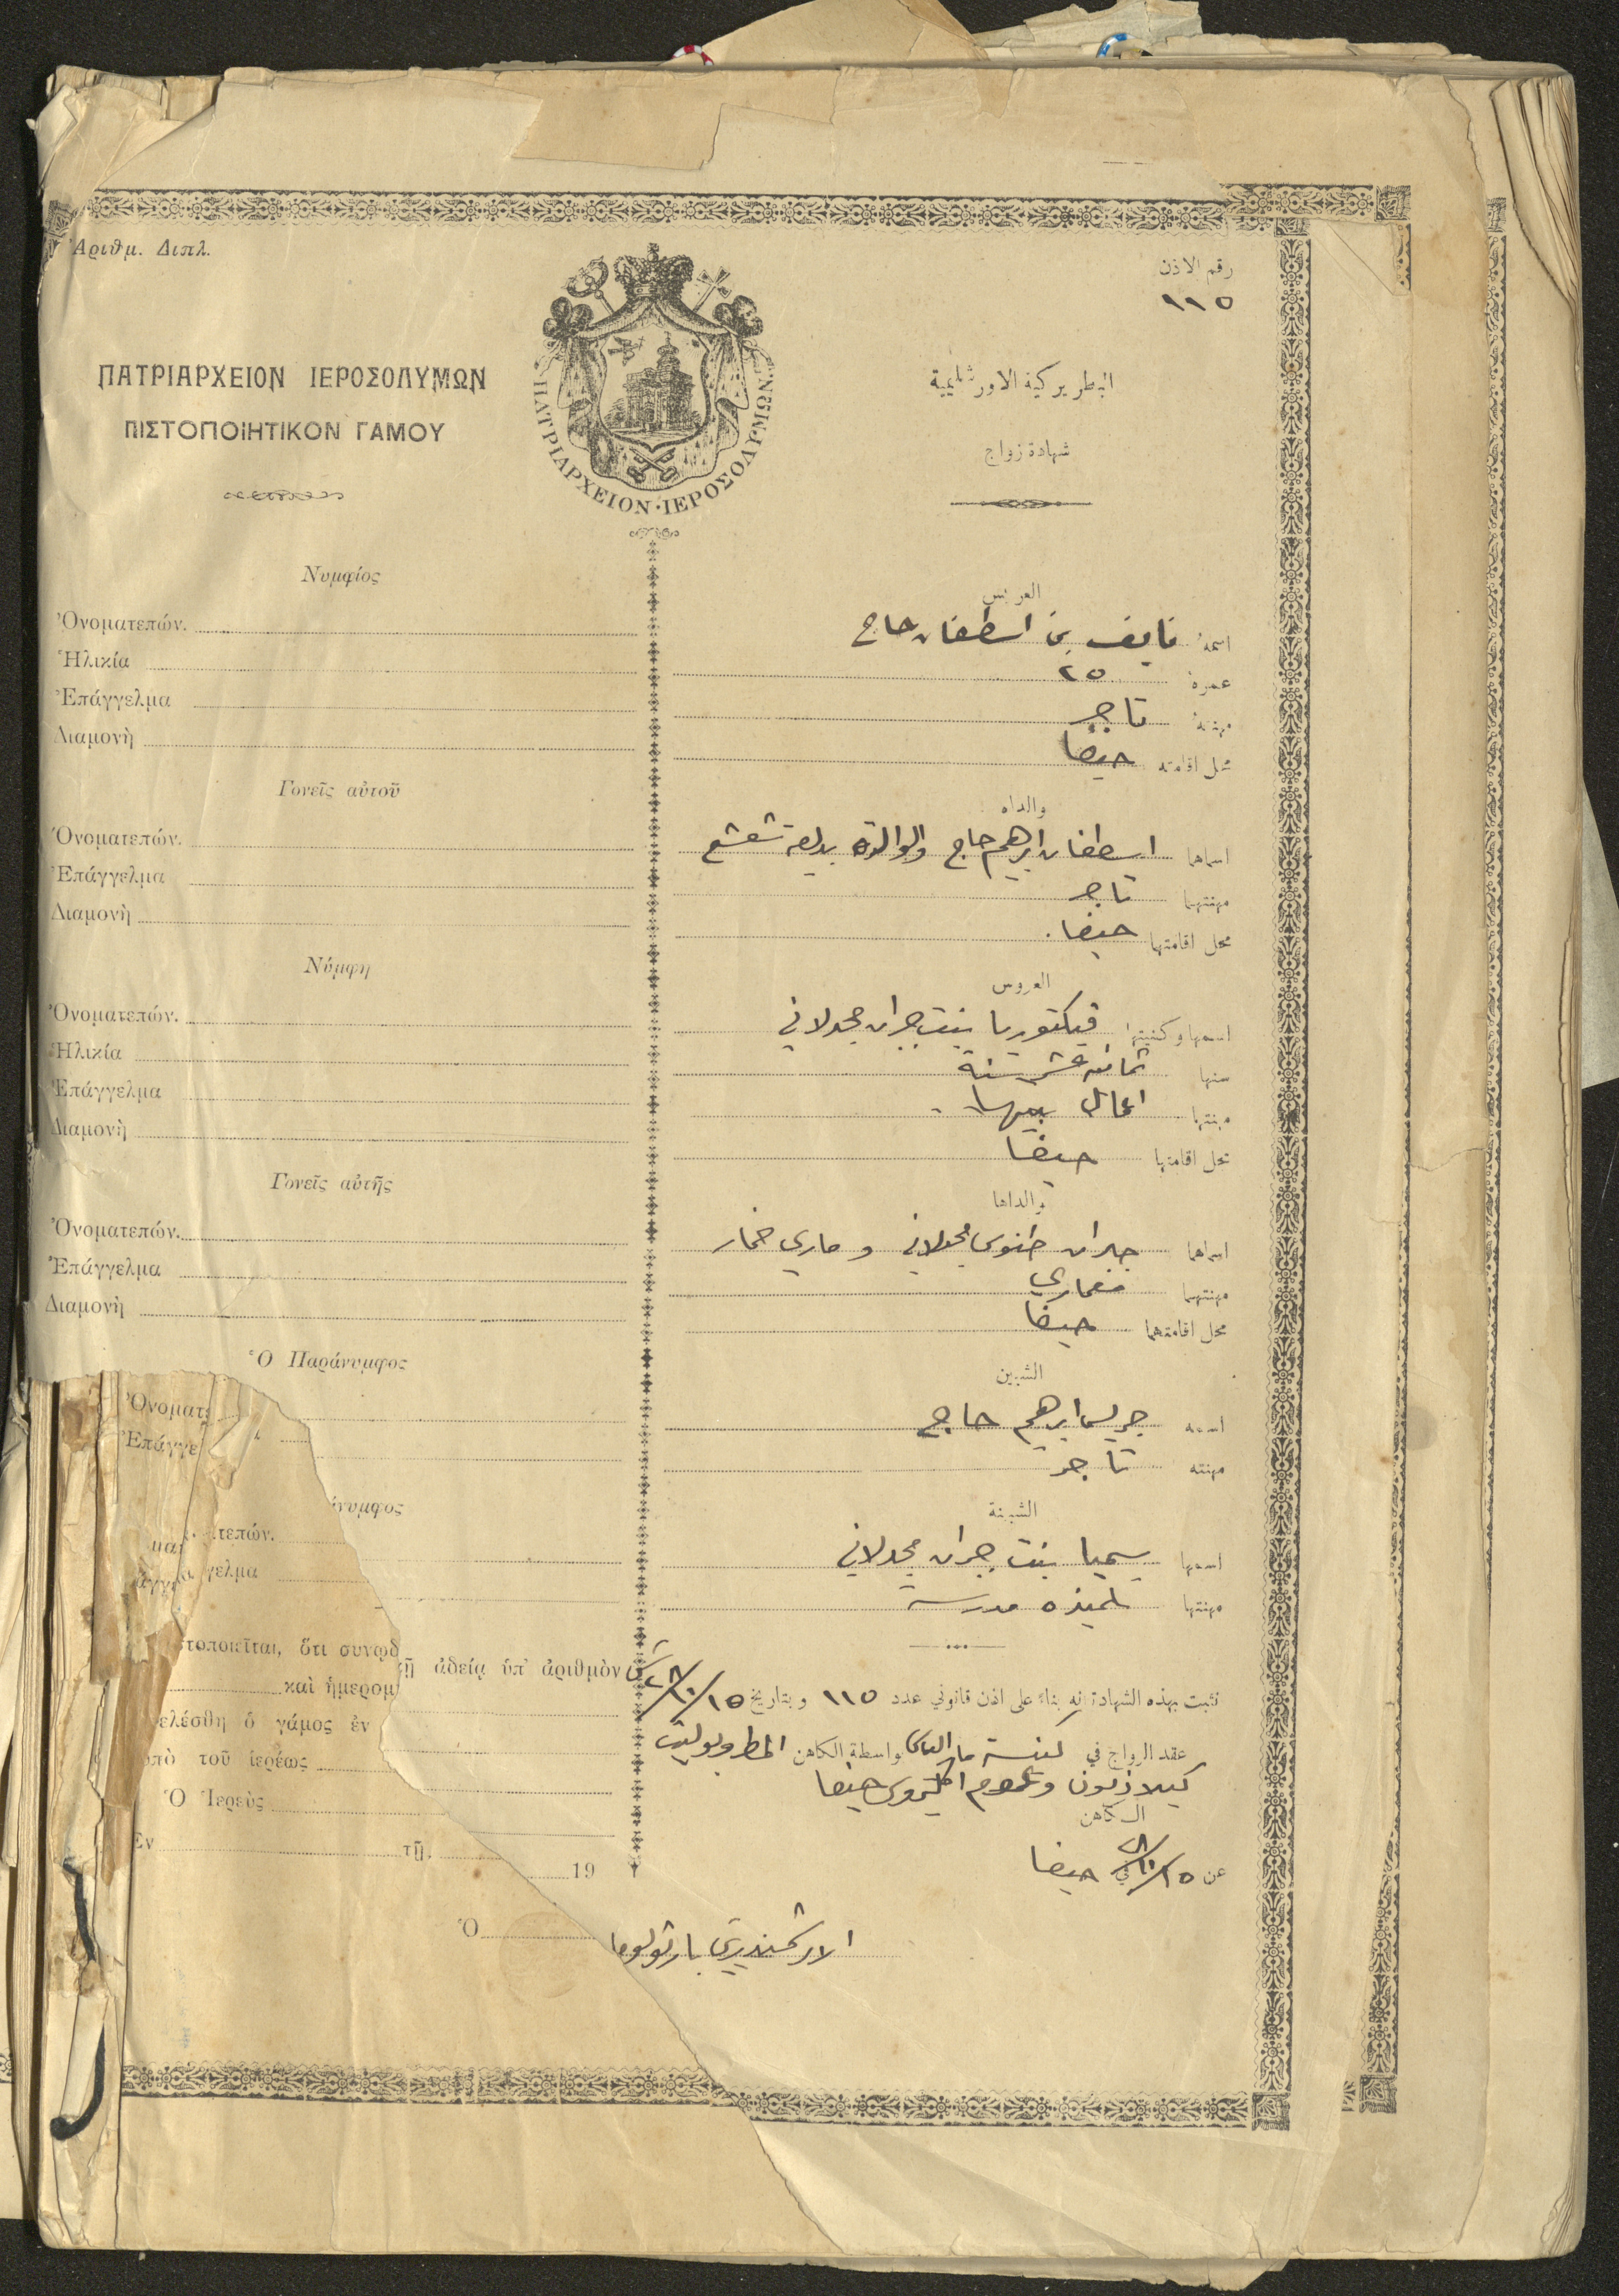 Ἀριθμ. Διπλ.
رقم الاذن
١١٥
ΠΑΤΡΙΑΡΧΕΙΟΝ ΙΕΡΟΣΟΛΥΜΩΝ
ΠΙΣΤΟΠΟΙΗΤΙΚΟΝ ΓΑΜΟΥ
ΠΑΤΡΙΑΡΧΕΙΟΝ·ΙΕΡΟΣΟΛΥΜΩΝ
البطريركية الاورشليمية
شهادة زواج
Νυμφίος
Ὀνοματεπών.
Ἡλικία
Ἐπάγγελμα
Διαμονὴ
Γονεῖς αὐτοῦ
Ὀνοματεπών.
Ἐπάγγελμα
Διαμονὴ
Νύμφη
Ὀνοματεπών.
Ἡλικία
Ἐπάγγελμα
Διαμονὴ
Γονεῖς αὐτῆς
Ὀνοματεπών.
Ἐπάγγελμα
Διαμονὴ
Ὁ Παράνυμφος
Ὀνοματ
Ἐπάγγε
νυμφος
τεπών.
γελμα
τοποιεῖται, ὅτι συνῳδ
ῇ ἀδείᾳ ὑπ' ἀριθμὸν
καὶ ἡμερομ
ελέσθη ὁ γάμος ἐν
ὑπὸ τοῦ ἱερέως
Ὁ Ἱερεὺς
Ἐν τῇ 19
Ὁ
العريس
اسمه نايف بن اسطفان حاج
عمره ٢٥
مهنته تاجر
محل اقامته حيفا
والداه
اسماهما اسطفان ابرهيم حاج والوالده بديعة شعشع
مهنتهما تاجر
محل اقامتها حيفا.
العروس
اسمها وكنيتها فيكتوريا بنت جبران مجدلاني
سنها ثمانية عشر سنة
مهنتها اعمال بيتها.
محل اقامتها حيفا
والداها
اسماهما جبران طنوس مجدلاني و ماري خمار
مهنتهما معماري
محل اقامتهما حيفا
الشبين
اسمه جريس ابرهيم حاج
مهنته تاجر
الشبينة
اسمها سميا بنت جبران مجدلاني
مهنتها تلميذه مدرسة
نثبت بهذه الشهادة انه بناءً على اذن قانوني عدد ١١٥ وبتاريخ ١٥/١٠/٢٨
عقد الزواج في كنيسة مار الياس بواسطة الكاهن المطروبوليت
كيلاذيون وعموم اكليروس حيفا
الكاهن
عن ١٥/١٠/٢٨ في حيفا
الارشمندريتي بارثولوما